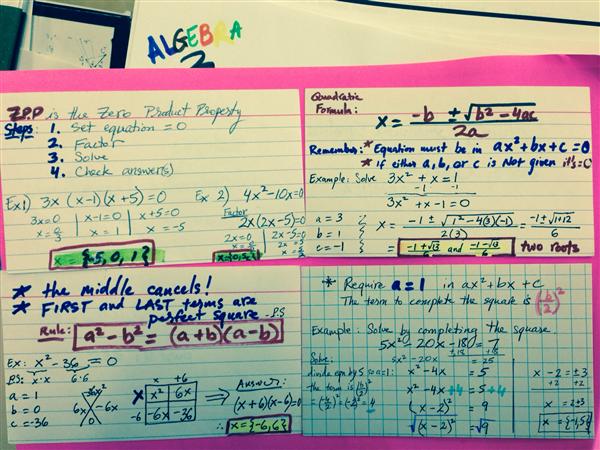 ALGEBRA
2
ZPP is the Zero Product Property
Steps: 1. Set equation = 0
2. Factor
3. Solve
4. Check answer(s)
Ex 1) 3x (x-1)(x+5)=0
3x=0 | x-1=0 | x+5=0
x=1 x=-5
x = {-5, 0, 1}
Ex 2) 4x²-10x=0
Factor
2x(2x-5)=0
2x=0 2x-5=0
2x=5
Quadratic
Formula: x = -b ± √b²-4ac
2a
Remember: * Equation must be in ax²+bx+c=0
* if either a, b, or c is Not given it's=0
Example: Solve 3x² + x = 1
-1 -1
3x² + x -1 = 0
a = 3
b = 1
c = -1
x = -1 ± √1²-4(3)(-1) = -1±√1+12
2(3) 6
-1+√13 and -1-√13 two roots
6 6
* the middle cancels!
* FIRST and LAST terms are
perfect square - P.S
Rule: a² - b² = (a+b)(a-b)
Ex: x² - 36 = 0
P.S: x·x 6·6
a = 1
b = 0
c = -36
6x -6x
x +6
x x² 6x
-6 -6x -36
Answer:
(x+6)(x-6)=0
∴ x = {-6, 6}
* Require a = 1 in ax²+bx+c
The term to complete the square is (b/2)²
Example: Solve by completing the square
5x² - 20x - 18 = 7
+18 +18
Solve: 5x² - 20x = 25
divide eqn by 5 so a=1: x² - 4x = 5
the term is (b/2)² x² - 4x + 4 = 5 + 4
= (-4/2)² = (-2)² = 4 (x - 2)² = 9
√(x - 2)² = √9
x - 2 = ±3
+2 +2
x = 2±3
x = {-1, 5}